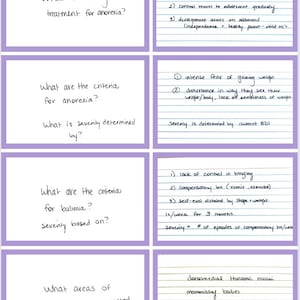 treatment for anorexia?
2) control moves to adolescent gradually
3) development issues on additional
(independence + healthy parent-child rel)
What are the criteria
for anorexia?
What is severity determined
by?
① intense fear of gaining weight
② disturbance in way they see their
weight/body, lack of seriousness of weight
Severity is determined by current BMI
What are the criteria
for bulimia?
severity based on?
1) lack of control in binging
2) compensatory bx (vomit, exercise)
3) self-eval distured by shape + weight
1x/week for 3 months
Severity = # of episodes of compensatory bx/week
What areas of
dorsomedial thalamic nuclei
mammillary bodies